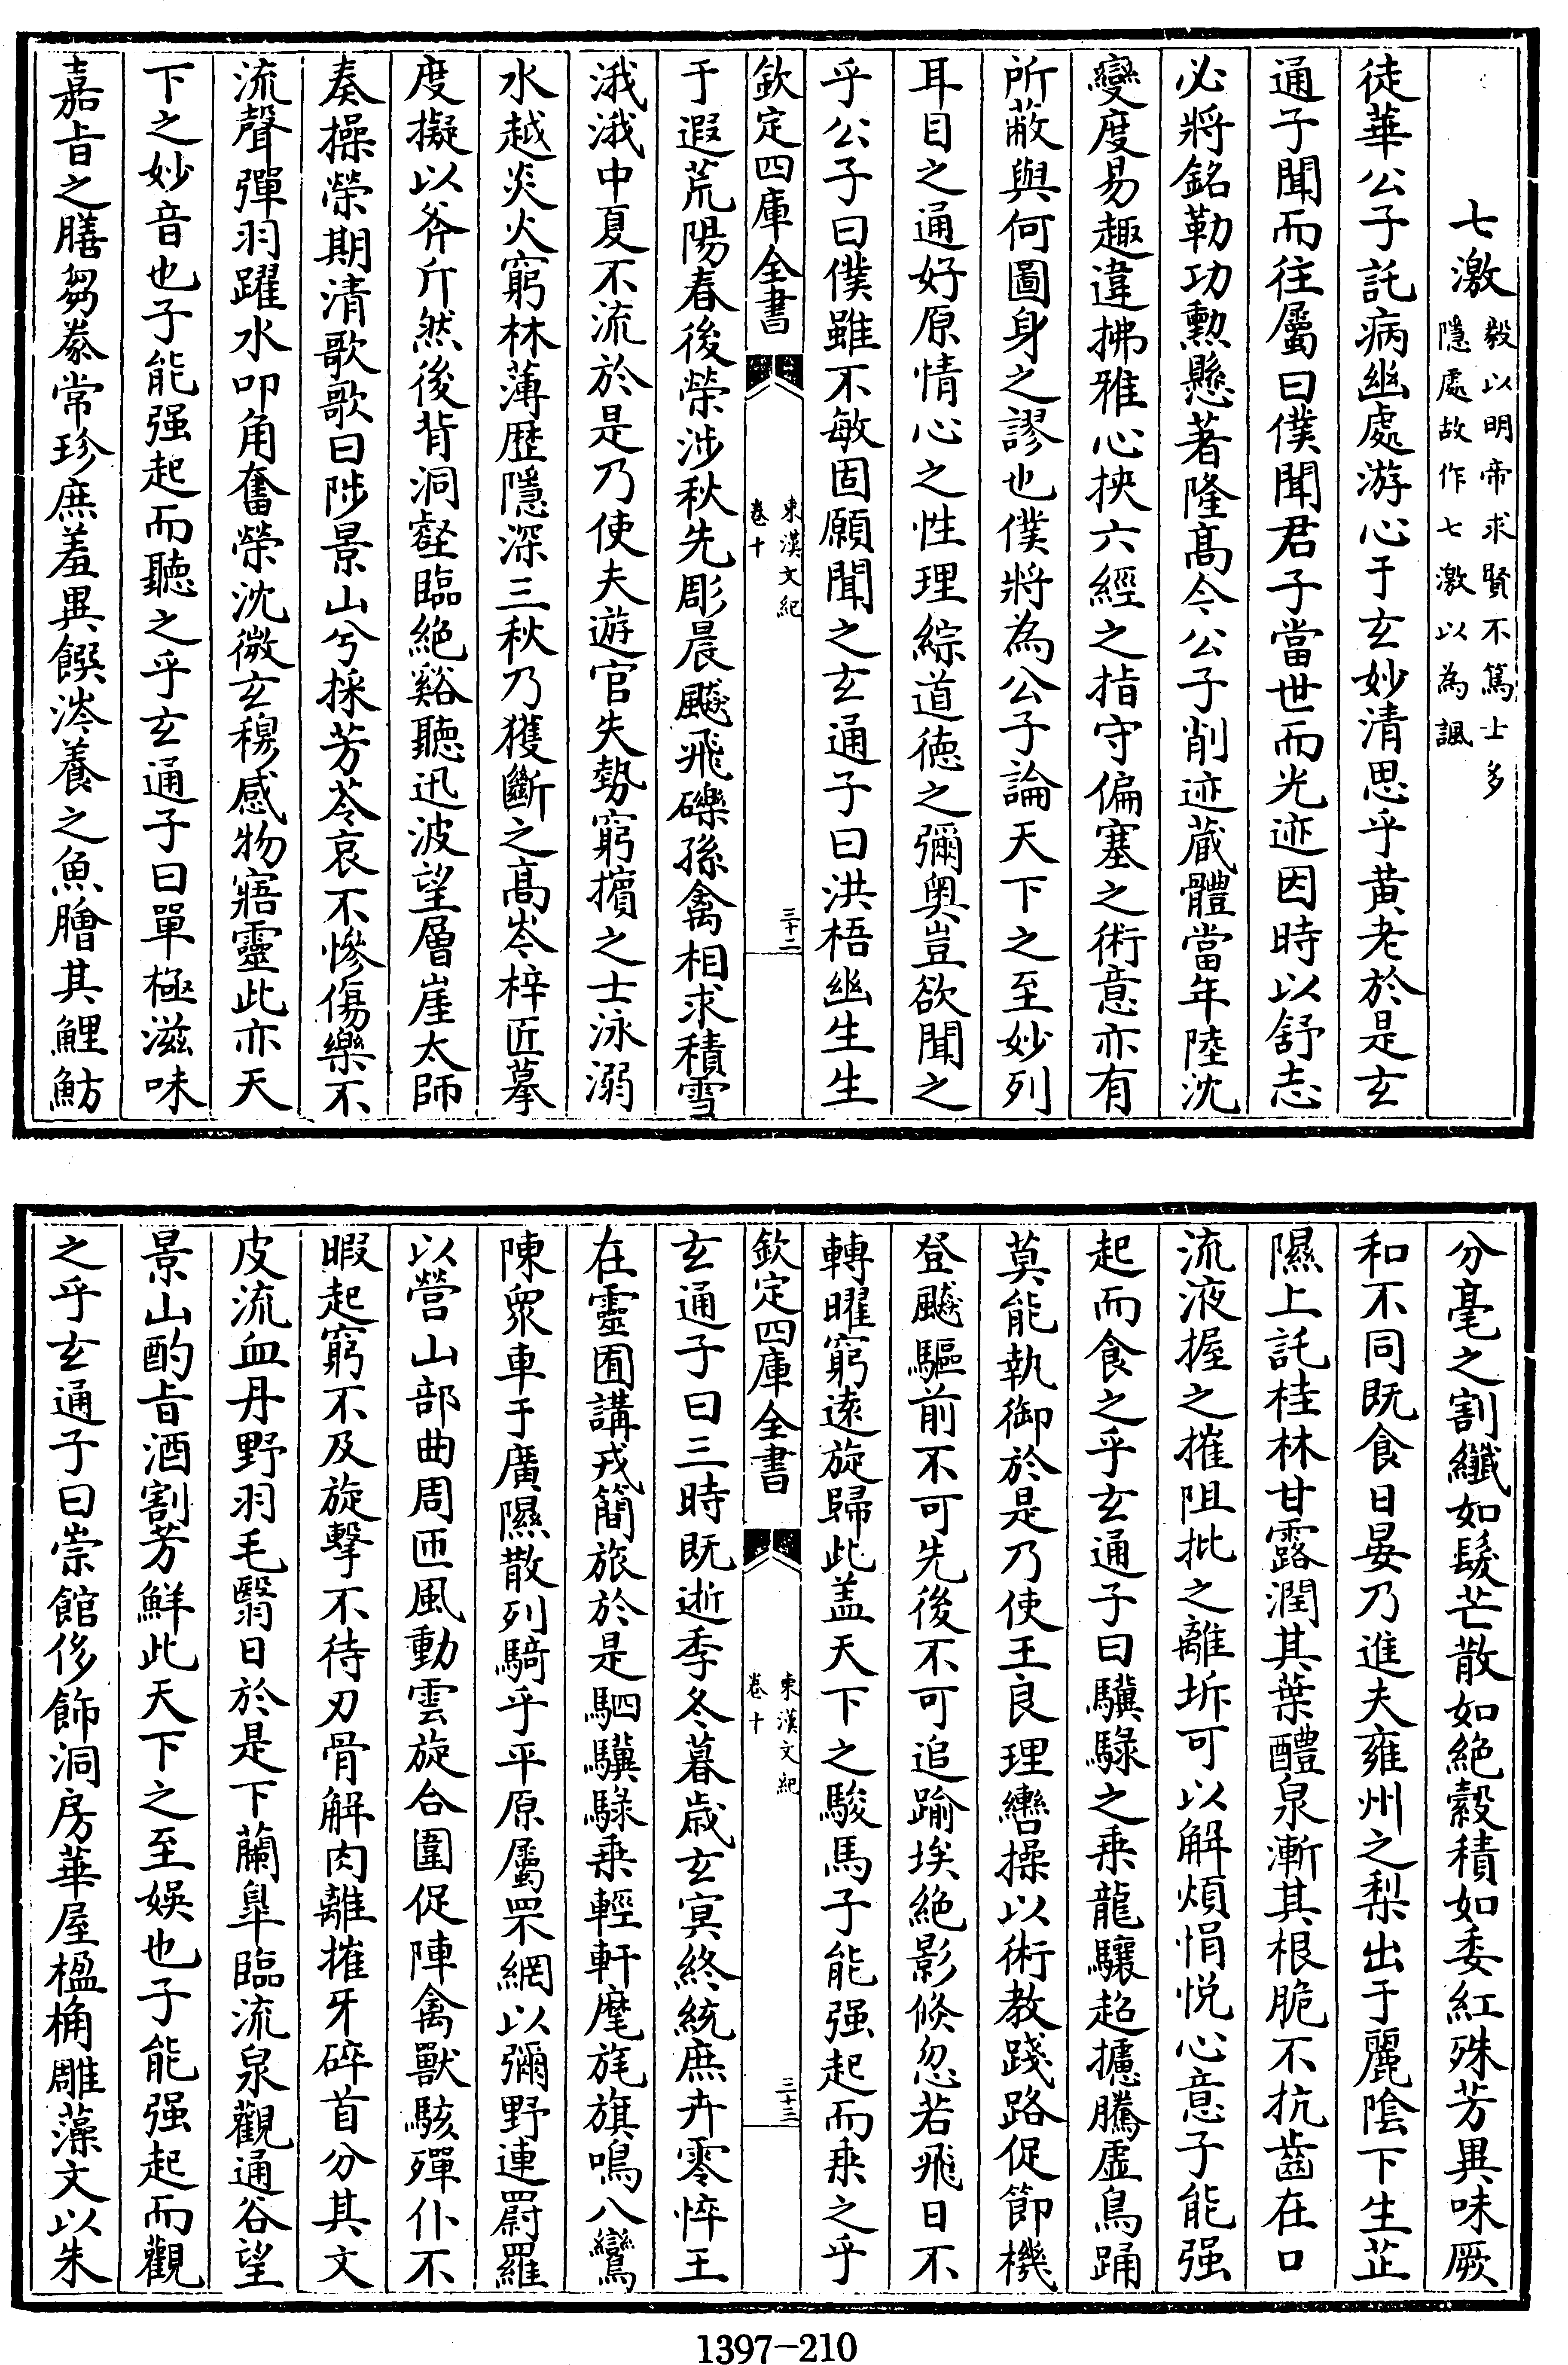 七激毅以明帝求賢不篤士多
隱處故作七激以為諷
徒華公子託病幽處游心于玄妙清思乎黄老於是玄
通子聞而往屬曰僕聞君子當世而光迹因時以舒志
必將銘勒功勲懸著隆髙今公子削迹蔵體當年陸沈
變度易趣違拂雅心挾六經之指守偏塞之術意亦有
所蔽與何圖身之謬也僕將為公子論天下之至妙列
耳目之通好原情心之性理綜道徳之彌奥豈欲聞之
乎公子曰僕雖不敏固願聞之玄通子曰洪梧幽生生
欽定四庫全書
東漢文紀
卷十
三十二
于遐荒陽春後榮涉秋先彫晨飇飛礫孫禽相求積雪
涐涐中夏不流於是乃使夫遊官失勢窮擯之士泳溺
水越炎火窮林薄歴隱深三秋乃獲斷之髙岑梓匠摹
度擬以斧斤然後背洞壑臨絶谿聽迅波望層崖太師
奏操榮期清歌歌曰陟景山兮採芳苓哀不慘傷樂不
流聲彈羽躍水叩角奮榮沈微玄穆感物寤靈此亦天
下之妙音也子能强起而聽之乎玄通子曰單極滋味
嘉旨之膳芻豢常珍庶羞異饌涔養之魚膾其鯉魴
分毫之割纖如髮芒散如絶縠積如委紅殊芳異味厥
和不同既食日晏乃進夫雍州之梨出于麗陰下生芷
隰上託桂林甘露潤其葉醴泉漸其根脆不抗齒在口
流液握之摧阻批之離坼可以解煩悁悦心意子能强
起而食之乎玄通子曰驥騄之乗龍驤超攄騰虛鳥踊
莫能執御於是乃使王良理轡操以術教踐路促節機
登飇驅前不可先後不可追踰埃絶影倏忽若飛日不
轉曜窮逺旋歸此盖天下之駿馬子能强起而乗之乎
欽定四庫全書
東漢文紀
卷十
三十三
玄通子曰三時既逝季冬暮歳玄㝠終統庶卉零悴王
在靈囿講戎簡旅於是駟驥騄乗輕軒麾旄旗鳴八鸞
陳衆車于廣隰散列騎乎平原屬罘網以彌野連罻羅
以營山部曲周匝風動雲旋合圍促陣禽獸駭殫仆不
暇起窮不及旋擊不待刃骨解肉離摧牙碎首分其文
皮流血丹野羽毛翳日於是下蘭臯臨流泉觀通谷望
景山酌旨酒割芳鮮此天下之至娛也子能强起而觀
之乎玄通子曰崇館侈飾洞房華屋楹桷雕藻文以朱
1397—210